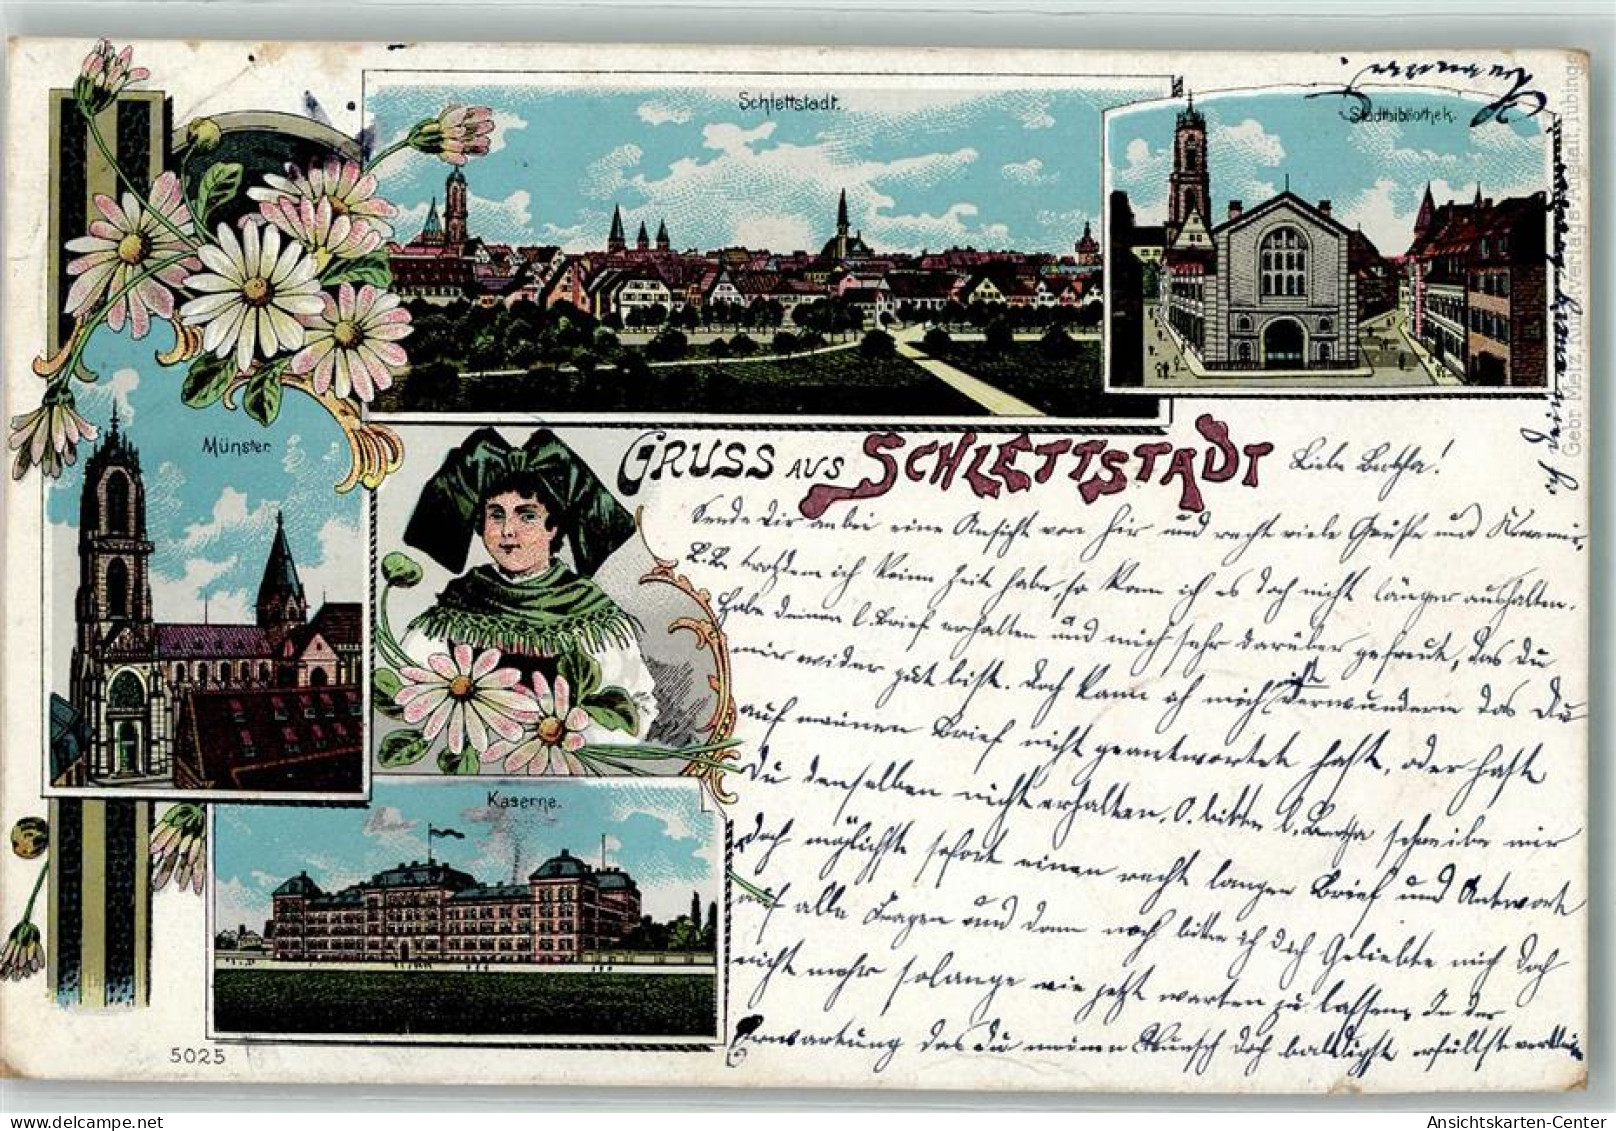 Schlettstadt.
Stadtbibliothek.
Münster.
Kaserne.
GRUSS AUS SCHLETTSTADT
Liebe Bertha!
Sende Dir anbei eine Ansicht von hir und recht viele Grüße und
trotzdem ich keine Zeit habe, so kann ich es doch nicht länger aushalten.
Habe deinen l. Brief erhalten und mich sehr darüber gefreut, das Du
mir wider gut bist. Doch kann ich mich verwundern das Du
auf meinen Brief nicht geantwortet hast, oder hast
Du denselben nicht erhalten. O bitte l. Bertha schreibe mir
doch möglichst sofort einen recht langen Brief und Antworte
auf alle Fragen und dann noch bitte ich dich Geliebte mich doch
nicht mehr solange wie jetzt warten zu lassen, In der
Erwartung das Du meinen Wunsch doch baldigst erfüllst verbleibe
ich dein
Gebr. Metz, Kunstverlags-Anstalt, Tübingen
5025
Ansichtskarten-Center